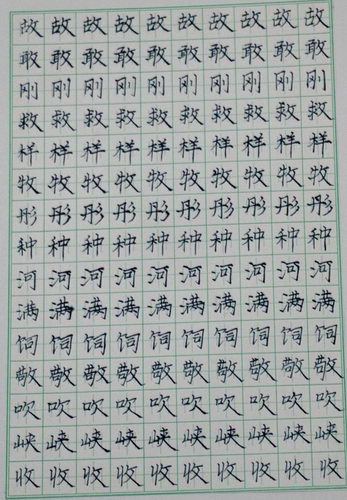 故故故故故故故故故故
敢敢敢敢敢敢敢敢敢敢
刚刚刚刚刚刚刚刚刚刚
救救救救救救救救救救
样样样样样样样样样样
牧牧牧牧牧牧牧牧牧牧
彤彤彤彤彤彤彤彤彤彤
种种种种种种种种种种
河河河河河河河河河河
满满满满满满满满满满
饲饲饲饲饲饲饲饲饲饲
敬敬敬敬敬敬敬敬敬敬
吹吹吹吹吹吹吹吹吹吹
峡峡峡峡峡峡峡峡峡峡
收收收收收收收收收收